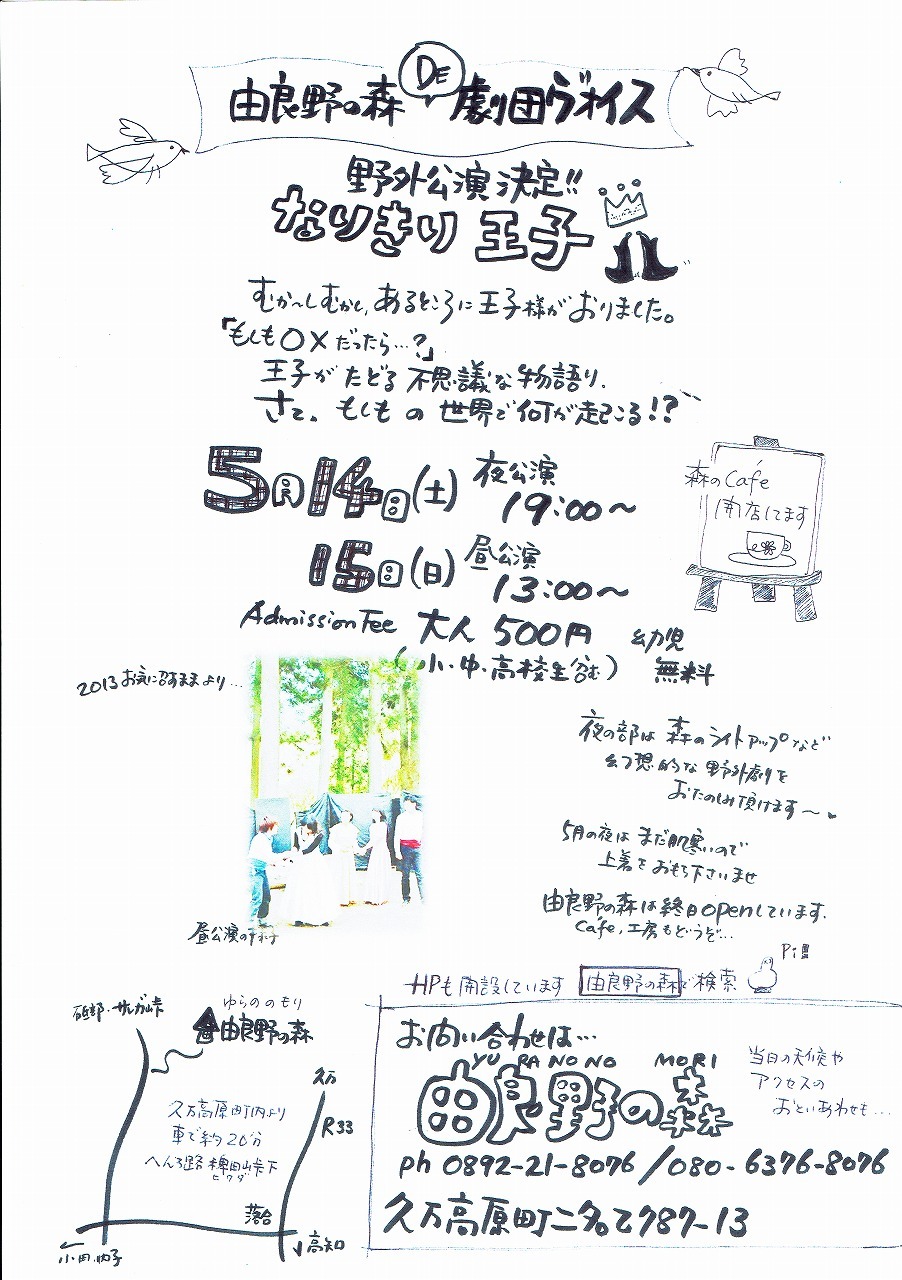 由良野の森 DE 劇団ヴォイス
野外公演決定!!
なりきり王子
むか〜しむかし、あるところに王子様がおりました。
「もしも○×だったら…?」
王子がたどる不思議な物語り.
さて。もしもの世界で何が起こる!?
5月14日(土) 夜公演
19:00〜
15日(日) 昼公演
13:00〜
森のCafé
開店してます
Admission Fee 大人 500円 幼児
(小・中・高校生含む) 無料
2013 お気に召すままより…
昼公演の様子
夜の部は森のライトアップなど
幻想的な野外劇を
おたのしみ頂けます〜
5月の夜はまだ肌寒いので
上着をおもち下さいませ
由良野の森は終日openしています.
Café,工房もどうぞ…
Pi!!
HPも開設しています 由良野の森で検索
砥部・サレガ峠
ゆらののもり
由良野の森
久万
R33
久万高原町内より
車で約20分
へんろ路 峠下
落合
小田.内子
高知
お問い合わせは…
YU RA NO NO MORI
由良野の森
当日の天候や
アクセスの
おといあわせも…
ph 0892-21-8076 / 080-6376-8076
久万高原町二名乙787-13